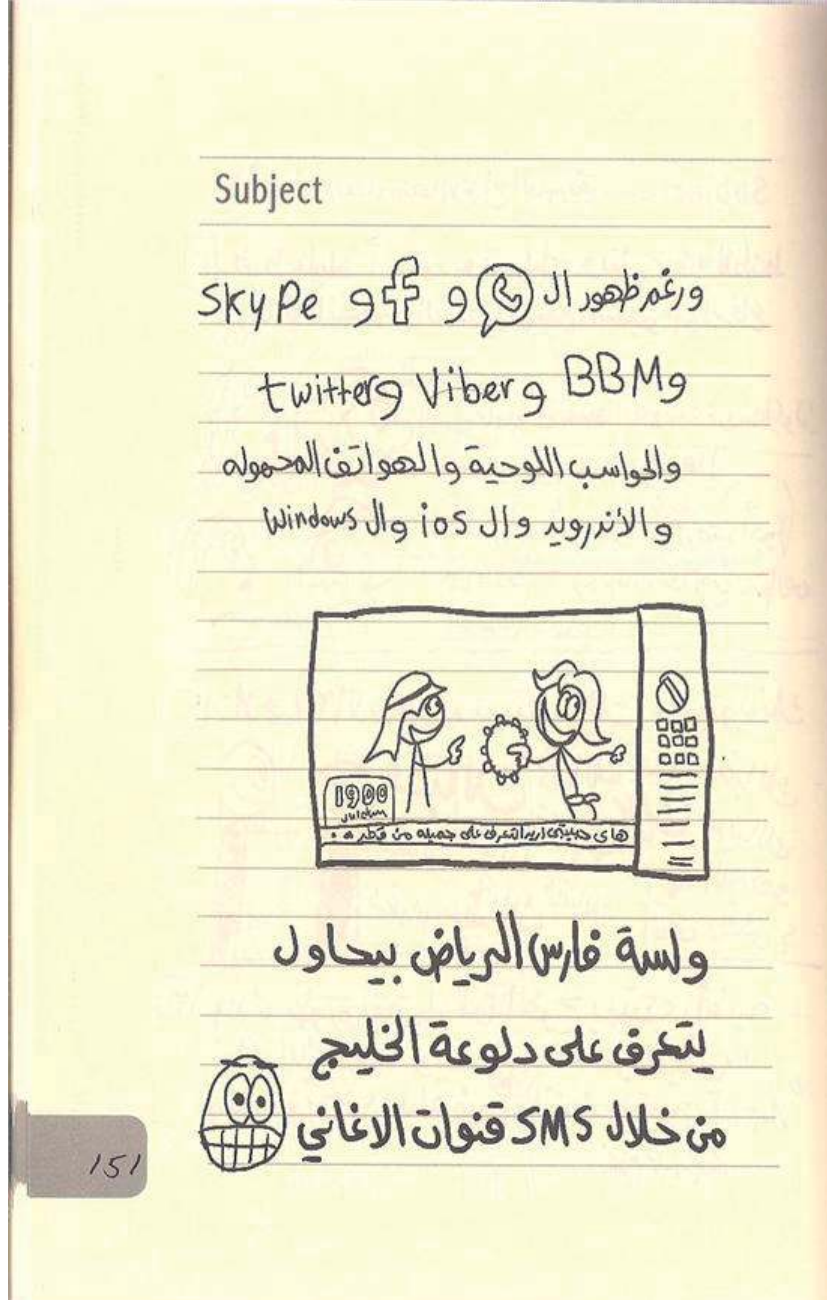 Subject
ورغم ظهور ال و f و Skype
و BBM و Viber و twitter
والحواسب اللوحية والهواتف المحموله
والأندرويد وال ios وال Windows
1900
هاي حبيبتي اريد اتعرف على جميله من قطر
ولسة فارس الرياض بيحاول
يتعرف على دلوعة الخليج
من خلال SMS قنوات الاغاني
151